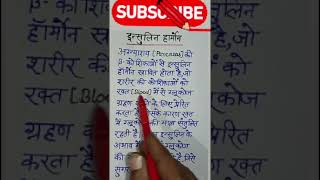 SUBSCRIBE
इन्सुलिन हार्मोन
अग्न्याशय (Pancreas) की
β- कोशिकाओं से इन्सुलिन
हॉर्मोन स्रावित होता है, जो
शरीर की कोशिकाओं को
रक्त (Blood) में से ग्लूकोज
ग्रहण के लिए प्रेरित
करता है कारण रक्त
में ग्लूकोज की मात्रा संतुलित
रहती है इन्सुलिन के
अभाव में ग्लूकोज
की